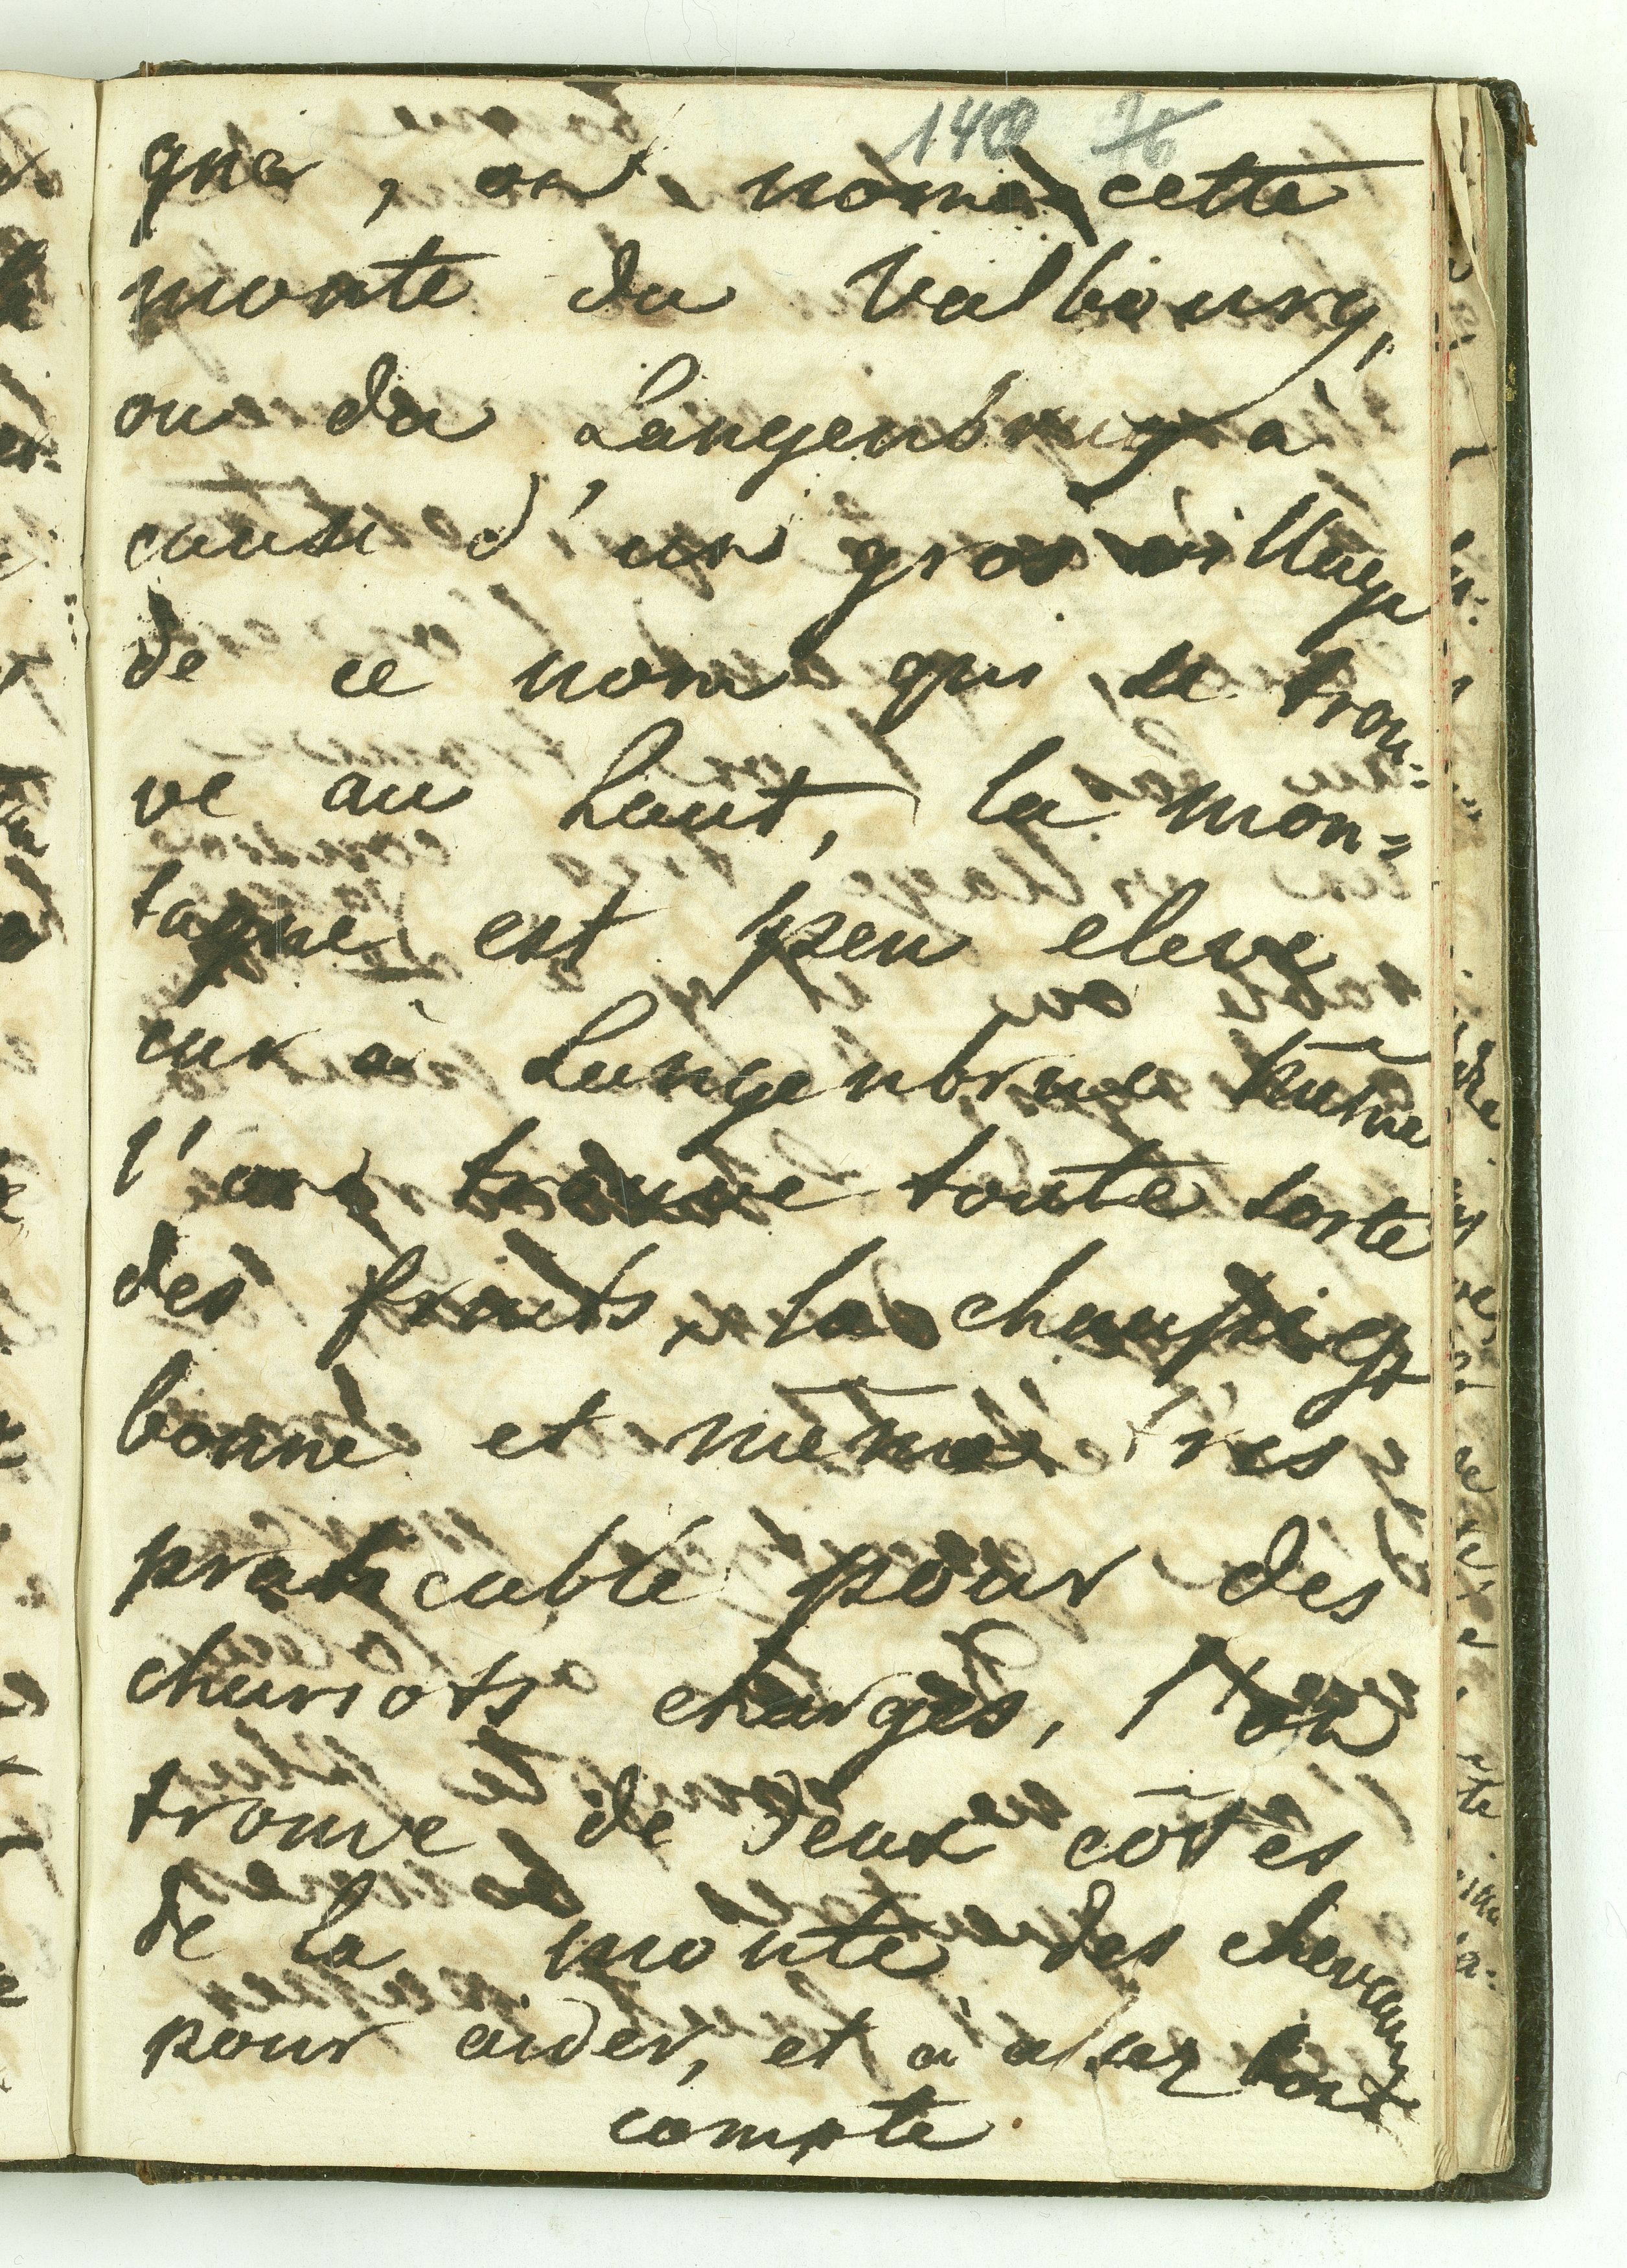 140 76
gne, on nome cette
monte du Valbourg,
ou du Langenbrug à
cause d'un gros village
de ce nom qui se trou=
ve au haut, la mon=
tagne est peu eleve
car à Langenbruc même
l'on trouve toute sorte
des fruits, la
bonne et même tres
praticable pour des
chariots charges, l'on
trouve de deux côtés
de la monte des chevaux
pour aider, et à assez bon
compte.